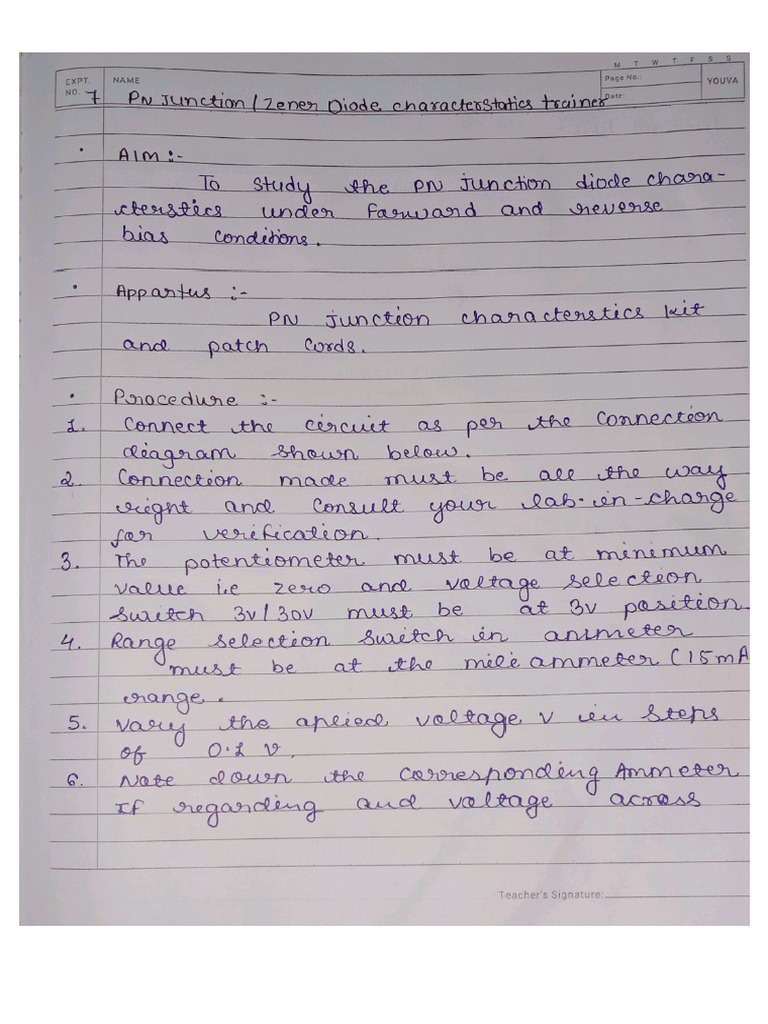 M T W T F S S
EXPT. NO. 7 NAME Page No.: YOUVA
PN Junction / Zener Diode characterstatics trainer Date:
• Aim :-
To study the PN junction diode chara-
cterstics under farward and reverse
bias conditions.
• Appartus :-
PN junction characterstics kit
and patch cords.
• Procedure :-
1. Connect the circuit as per the connection
diagram shown below.
2. Connection made must be all the way
right and consult your lab-in-charge
for verification.
3. The potentiometer must be at minimum
value i.e zero and voltage selection
switch 3v/30v must be at 3v position.
4. Range selection switch in ammeter
must be at the mile ammeter (15mA
range.
5. Vary the aplied voltage v in steps
of 0.1 v.
6. Note down the corresponding Ammeter
If regarding and voltage across
Teacher's Signature: